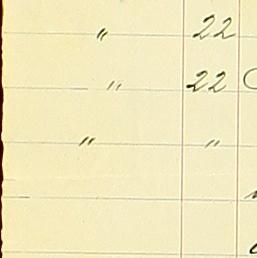 " 22
" 22
" "